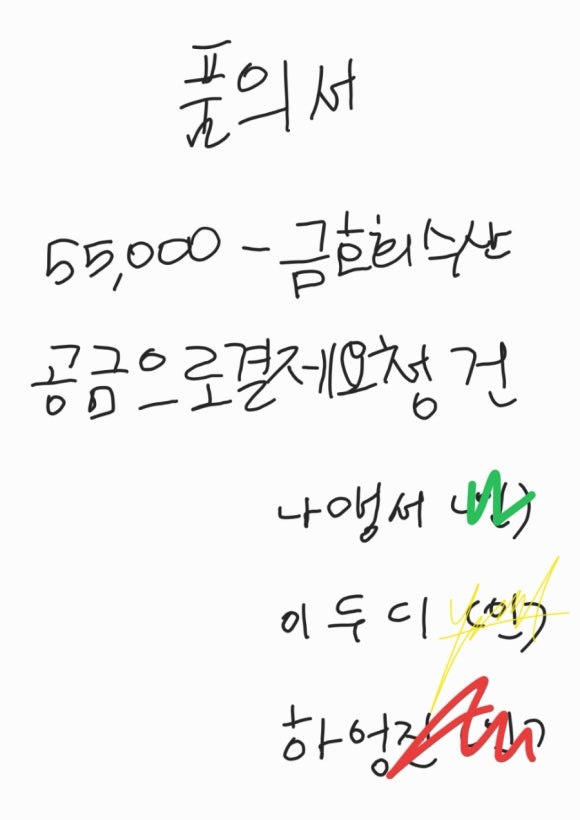 품의서
55,000 - 금흔희수산
공금으로결제요청 건
나앵서 (인)
이두디 (인)
하엉진 (인)